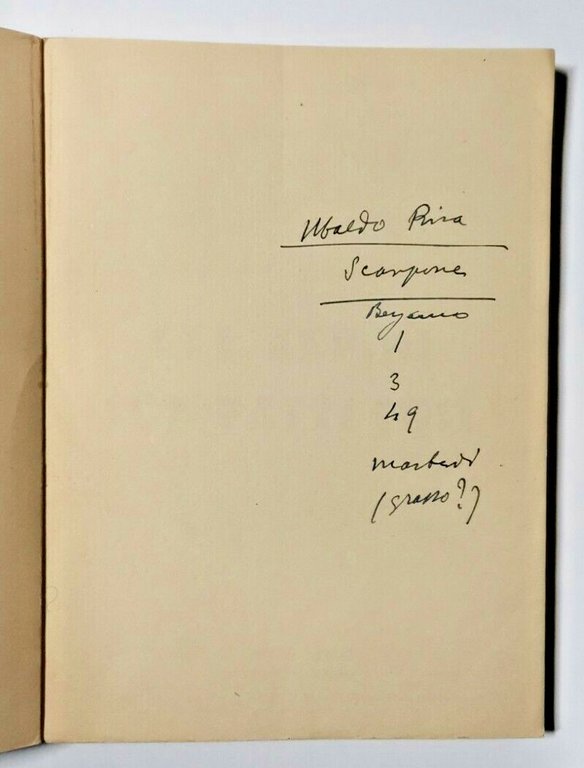 Ubaldo Riva
Scarpone
Bergamo
1
3
49
martedì
(grasso?)